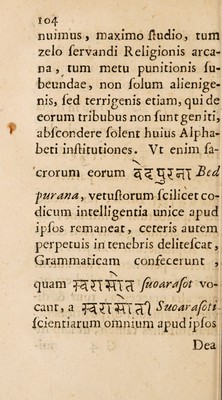 104
nuimus, maximo ſtudio, tum
zelo ſervandi Religionis arca-
na, tum metu punitionis ſu-
beundae, non ſolum alienige-
nis, ſed terrigenis etiam, qui de
eorum tribubus non ſunt geniti,
abſcondere ſolent huius Alpha-
beti inſtitutiones. Vt enim ſa-
crorum eorum वेदपुरना Bed
purana, vetuſtorum ſcilicet co-
dicum intelligentia unice apud
ipſos remaneat, ceteris autem
perpetuis in tenebris deliteſcat,
Grammaticam confecerunt,
quam स्वरासोत ſuoaraſot vo-
cant, a स्वरासोती Suoaraſoti
ſcientiarum omnium apud ipſos
Dea